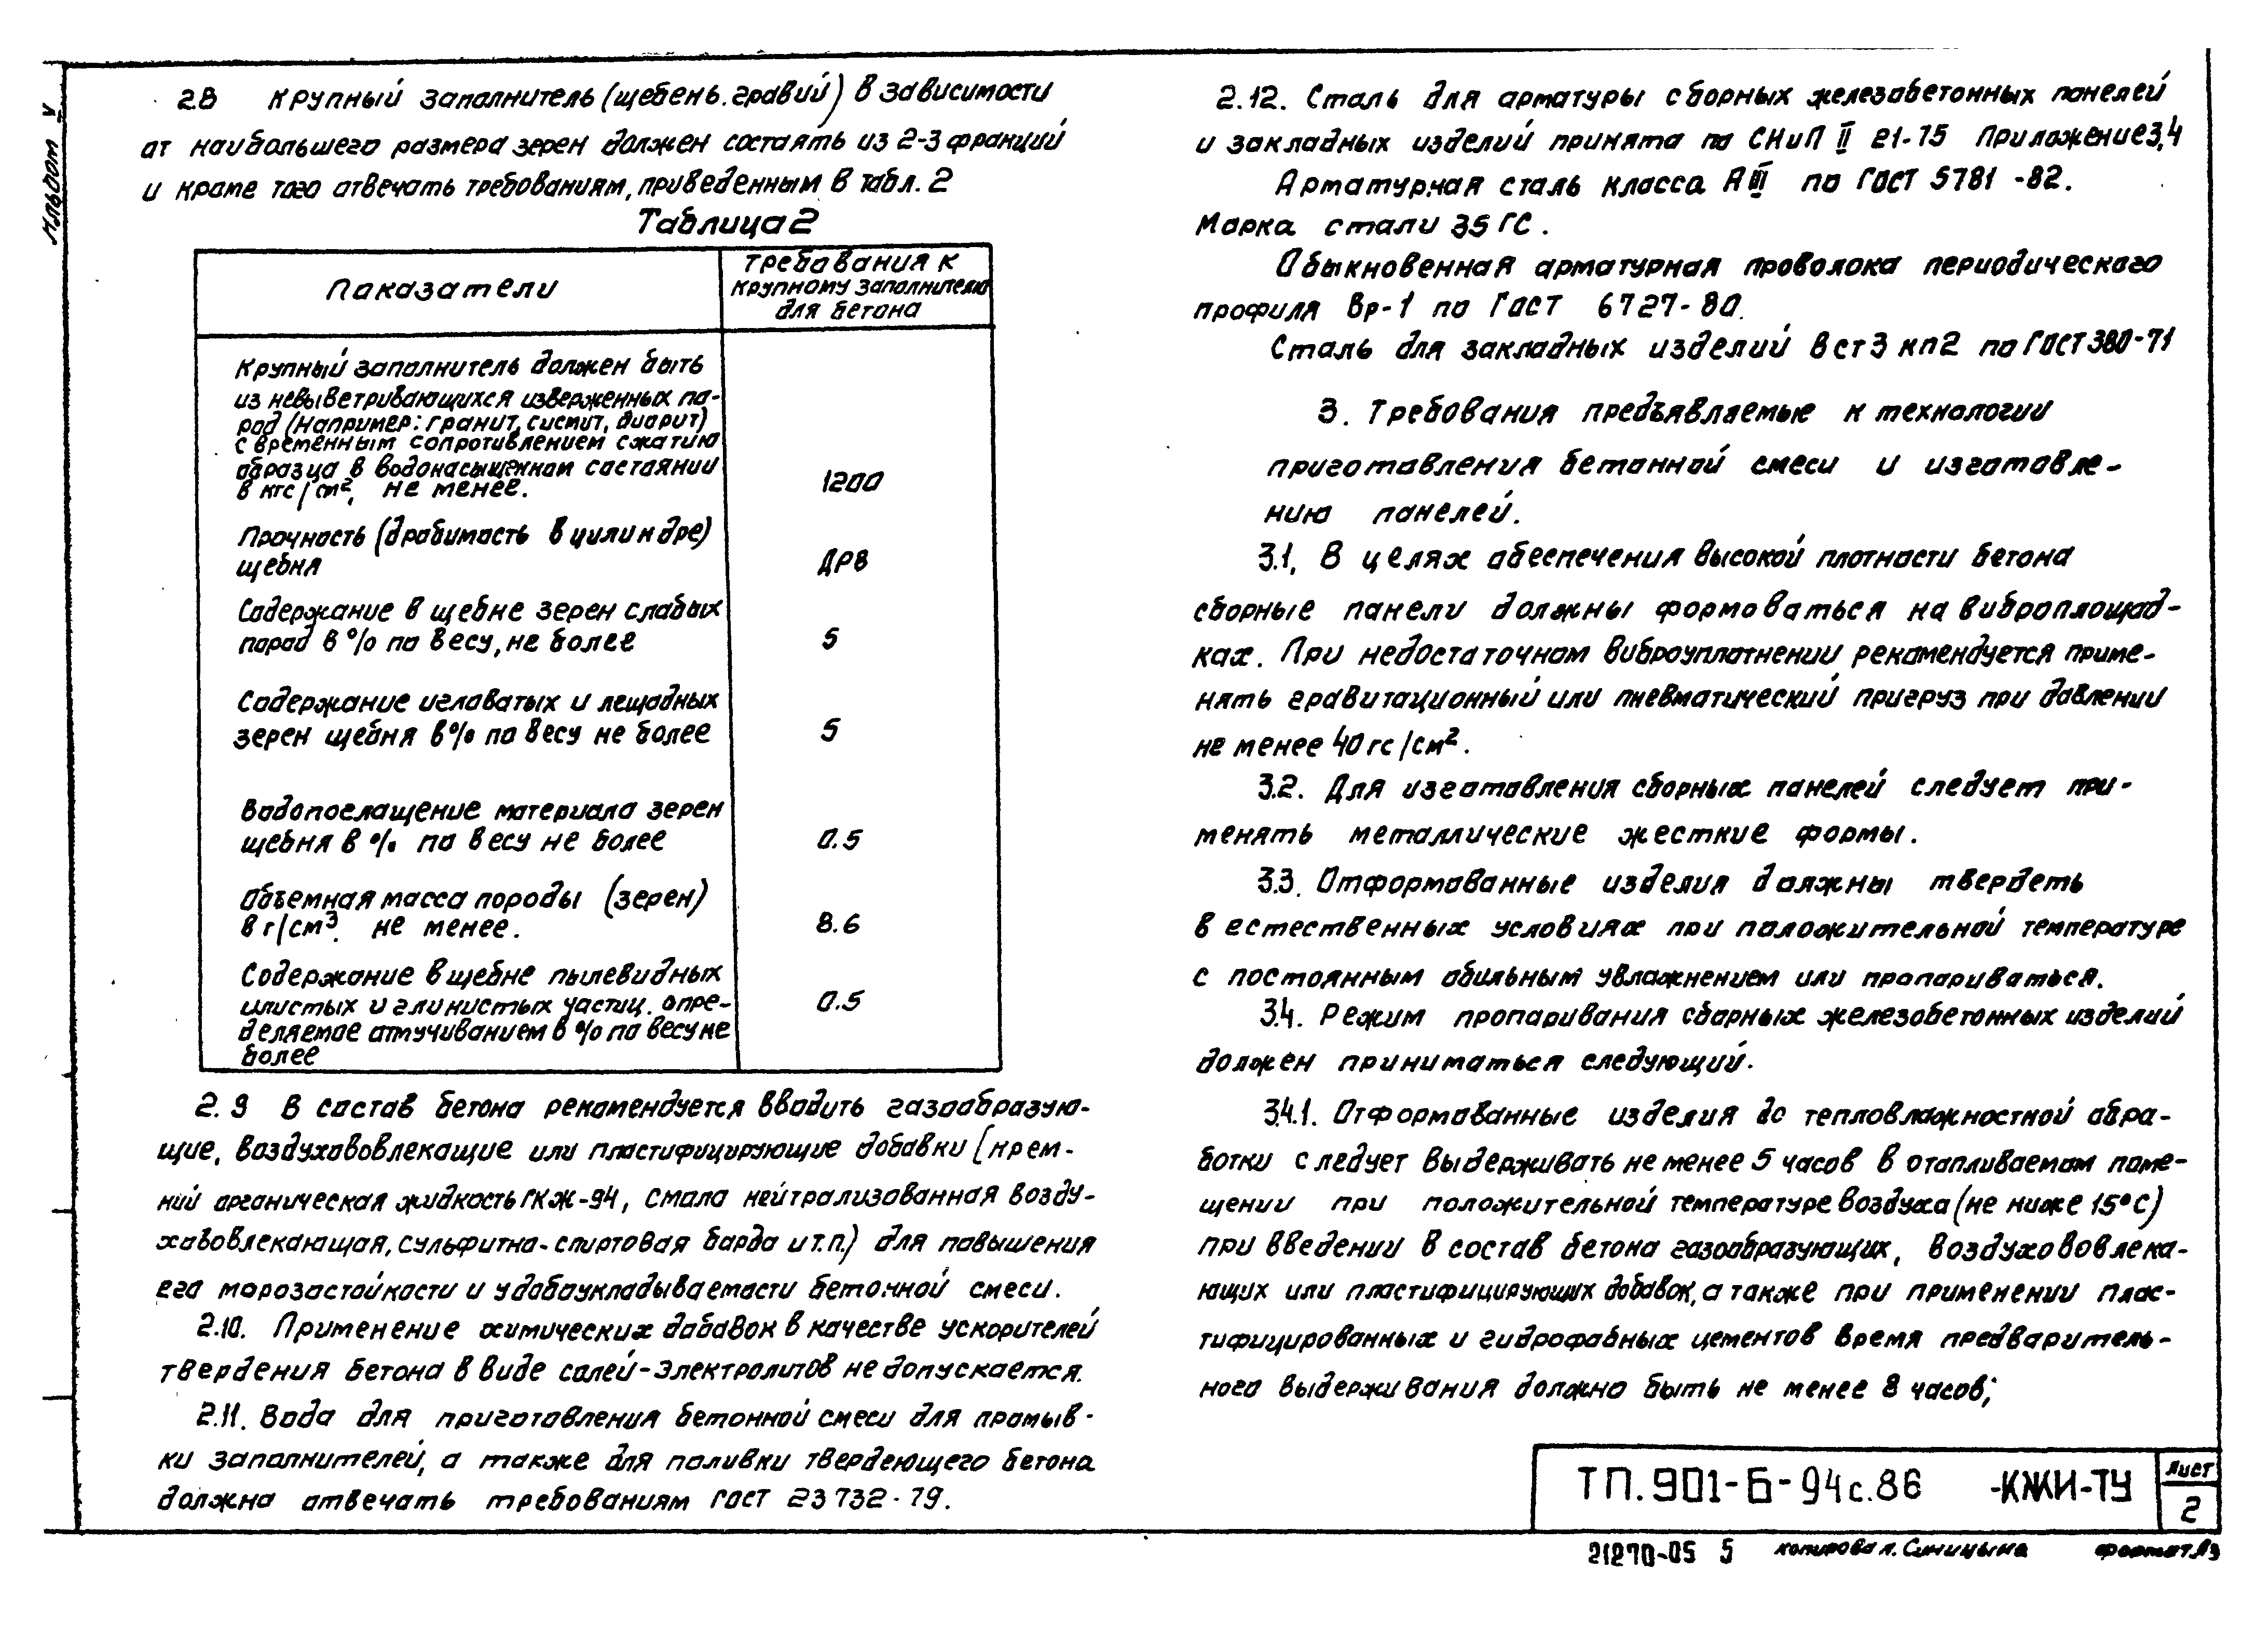 Альбом V
2.8 Крупный заполнитель (щебень. гравий) в зависимости
от наибольшего размера зерен должен состоять из 2-3 франций
и кроме того отвечать требованиям, приведенным в табл. 2
Таблица 2
Показатели
Требования к
крупному заполнителю
для бетона
Крупный заполнитель должен быть
из невыветривающихся изверженных по-
род (например: гранит, сиенит, диорит)
с временным сопротивлением сжатию
образца в водонасыщенном состоянии
в кгс/см², не менее.
1200
Прочность (дробимость в цилиндре)
щебня
ДР8
Содержание в щебне зерен слабых
пород в % по весу, не более
5
Содержание игловатых и лещадных
зерен щебня в % по весу не более
5
Водопоглащение материала зерен
щебня в % по весу не более
0.5
Объемная масса породы (зерен)
в г/см³. не менее.
8.6
Содержание в щебне пылевидных
илистых и глинистых частиц. опре-
деляемое отмучиванием в % по весу не
более
0.5
2.9 В состав бетона рекомендуется вводить газообразую-
щие, воздухововлекающие или пластифицирующие добавки (крем-
ний органическая жидкость ГКЖ-94, смола нейтрализованная возду-
хововлекающая, сульфитно-спиртовая барда и т.п.) для повышения
его морозостойкости и удобоукладываемости бетонной смеси.
2.10. Применение химических добавок в качестве ускорителей
твердения бетона в виде солей-электролитов не допускается.
2.11. Вода для приготовления бетонной смеси для промыв-
ки заполнителей, а также для поливки твердеющего бетона
должна отвечать требованиям ГОСТ 23732-79.
2.12. Сталь для арматуры сборных железобетонных панелей
и закладных изделий принята по СНиП II 21-75 Приложение 3,4
Арматурная сталь класса А III по ГОСТ 5781-82.
Марка стали 35 ГС.
Обыкновенная арматурная проволока периодического
профиля Вр-1 по ГОСТ 6727-80.
Сталь для закладных изделий В ст 3 кп 2 по ГОСТ 380-71
3. Требования предъявляемые к технологии
приготовления бетонной смеси и изготовле-
нию панелей.
3.1. В целях обеспечения высокой плотности бетона
сборные панели должны формоваться на виброплощад-
ках. При недостаточном виброуплотнении рекомендуется приме-
нять гравитационный или пневматический пригруз при давлении
не менее 40 гс/см².
3.2. Для изготовления сборных панелей следует при-
менять металлические жесткие формы.
3.3. Отформованные изделия должны твердеть
в естественных условиях при положительной температуре
с постоянным обильным увлажнением или пропариваться.
3.4. Режим пропаривания сборных железобетонных изделий
должен приниматься следующий.
3.4.1. Отформованные изделия до тепловлажностной обра-
ботки следует выдерживать не менее 5 часов в отапливаемом поме-
щении при положительной температуре воздуха (не ниже 15°С)
при введении в состав бетона газообразующих, воздухововлека-
ющих или пластифицирующих добавок, а также при применении плас-
тифицированных и гидрофобных цементов время предваритель-
ного выдерживания должно быть не менее 8 часов;
ТП.901-6-94с.86 -КЖИ-ТУ
Лист
2
21270-05 5 копировал. Синицына формат А3